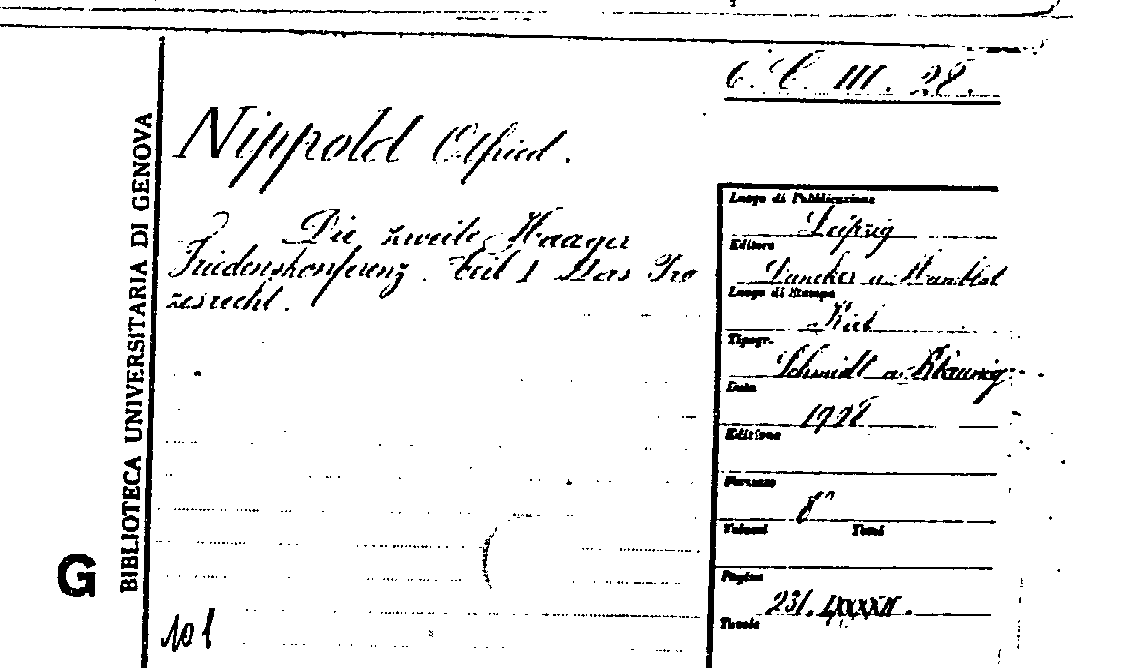 6. C. III. 28.
Nippold Otfried.
Die zweite Haager
Friedenskonferenz. Teil I Das Pro
zesrecht.
101
BIBLIOTECA UNIVERSITARIA DI GENOVA
G
Luogo di Pubblicazione
Leipzig
Editore
Duncker u. Humblot
Luogo di Stampa
Kiel
Tipogr.
Schmidt u. Klaunig
Data
Edizione
Formato
8°
Volumi Tomi
Pagine
231.
Tavole